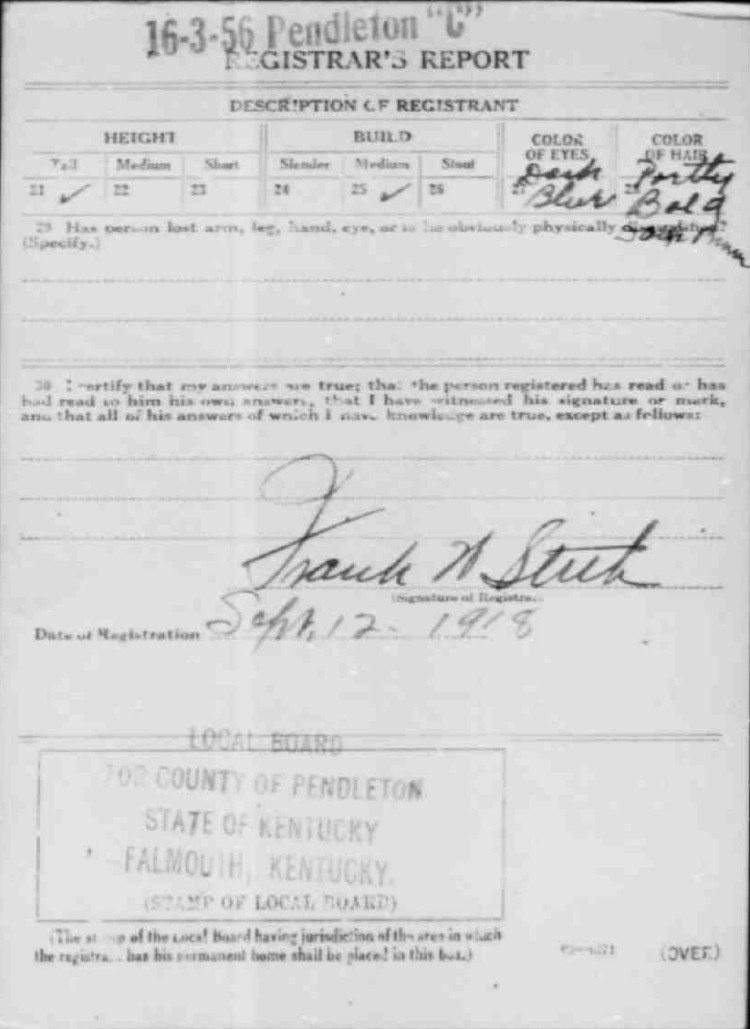 16-3-56 Pendleton "C"
REGISTRAR'S REPORT
DESCRIPTION OF REGISTRANT
HEIGHT BUILD COLOR OF EYES COLOR OF HAIR
Tall Medium Short Slender Medium Stout
21 ✓ 22 23 24 25 ✓ 26 27 Dark Blue 28 Partly Bald Dark Brown
29 Has person lost arm, leg, hand, eye, or is he obviously physically disqualified?
(Specify.)
30 I certify that my answers are true; that the person registered has read or has
had read to him his own answers, that I have witnessed his signature or mark,
and that all of his answers of which I have knowledge are true, except as follows:
Frank
(Signature of Registrar)
Date of Registration Sept. 12 - 1918
LOCAL BOARD
FOR COUNTY OF PENDLETON
STATE OF KENTUCKY
FALMOUTH, KENTUCKY.
(STAMP OF LOCAL BOARD)
(The stamp of the Local Board having jurisdiction of the area in which
the registrant has his permanent home shall be placed in this box.)
(OVER)